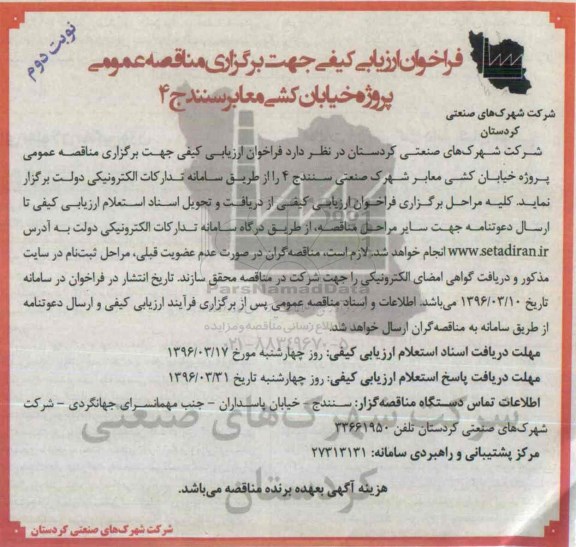 نوبت دوم
فراخوان ارزیابی کیفی جهت برگزاری مناقصه عمومی
پروژه خیابان کشی معابر سنندج ۴
شرکت شهرک‌های صنعتی
کردستان
شرکت شهرک‌های صنعتی کردستان در نظر دارد فراخوان ارزیابی کیفی جهت برگزاری مناقصه عمومی
پروژه خیابان کشی معابر شهرک صنعتی سنندج ۴ را از طریق سامانه تدارکات الکترونیکی دولت برگزار
نماید. کلیه مراحل برگزاری فراخوان ارزیابی کیفی از دریافت و تحویل اسناد استعلام ارزیابی کیفی تا
ارسال دعوتنامه جهت سایر مراحل مناقصه، از طریق درگاه سامانه تدارکات الکترونیکی دولت به آدرس
www.setadiran.ir انجام خواهد شد. لازم است، مناقصه‌گران در صورت عدم عضویت قبلی، مراحل ثبت‌نام در سایت
مذکور و دریافت گواهی امضای الکترونیکی را جهت شرکت در مناقصه محقق سازند. تاریخ انتشار در فراخوان در سامانه
تاریخ ۱۳۹۶/۰۳/۱۰ می‌باشد. اطلاعات و اسناد مناقصه عمومی پس از برگزاری فرآیند ارزیابی کیفی و ارسال دعوتنامه
از طریق سامانه به مناقصه‌گران ارسال خواهد شد.
مهلت دریافت اسناد استعلام ارزیابی کیفی: روز چهارشنبه مورخ ۱۳۹۶/۰۳/۱۷
مهلت دریافت پاسخ استعلام ارزیابی کیفی: روز چهارشنبه تاریخ ۱۳۹۶/۰۳/۳۱
اطلاعات تماس دستگاه مناقصه‌گزار: سنندج- خیابان پاسداران - جنب مهمانسرای جهانگردی - شرکت
شهرک‌های صنعتی کردستان تلفن ۳۳۶۶۱۹۵۰
مرکز پشتیبانی و راهبردی سامانه: ۲۷۳۱۳۱۳۱
هزینه آگهی بعهده برنده مناقصه می‌باشد.
شرکت شهرک‌های صنعتی کردستان
ParsNamadData
اطلاع رسانی مناقصه و مزایده
۰۲۱-۸۸۳۴۹۶۷۰-۵
شرکت شهرک‌های صنعتی
کردستان